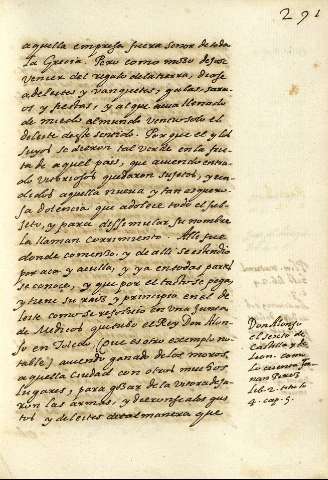 291
aquella empresa fuera señor de toda
la Grecia. Pero como mozo dejose
vencer del regalo de la tierra, diose
a deleites y vanquetes, galas, sara-
os y fiestas, y al que auia llenado
de miedo al mundo vencio solo el
deleite deste sentido. Porque el y los
suyos se dieron tal verde en la fru-
ta de aquel pais, que auiendo entra-
do victoriosos quedaron sujetos, y en-
aquella nueva y tan asquero-
sa dolencia que adolece todo el sub-
jeto, y para dissimular su nombre
la llaman corrimiento. Alli fue
donde comenzo, y de alli se estendio
por aca y aculla, y ya en todas partes
se conoce, y que por el tacto se pega,
y tiene su raiz y principio en el de-
leite como se resolvio en una junta
de Medicos que tubo el Rey Don Alon-
so en Toledo, (que es otro exemplo no-
table) auiendo ganado de los moros
aquella Ciudad con otros muchos
lugares, para gozar de la vitoria deja-
ron las armas, y dieronse a los gus-
tos y deleites de tal manera que
Don Alonso
el sexto de
Castilla y de
Leon. como
lo cuenta
lib. 2. 
4. cap. 5.